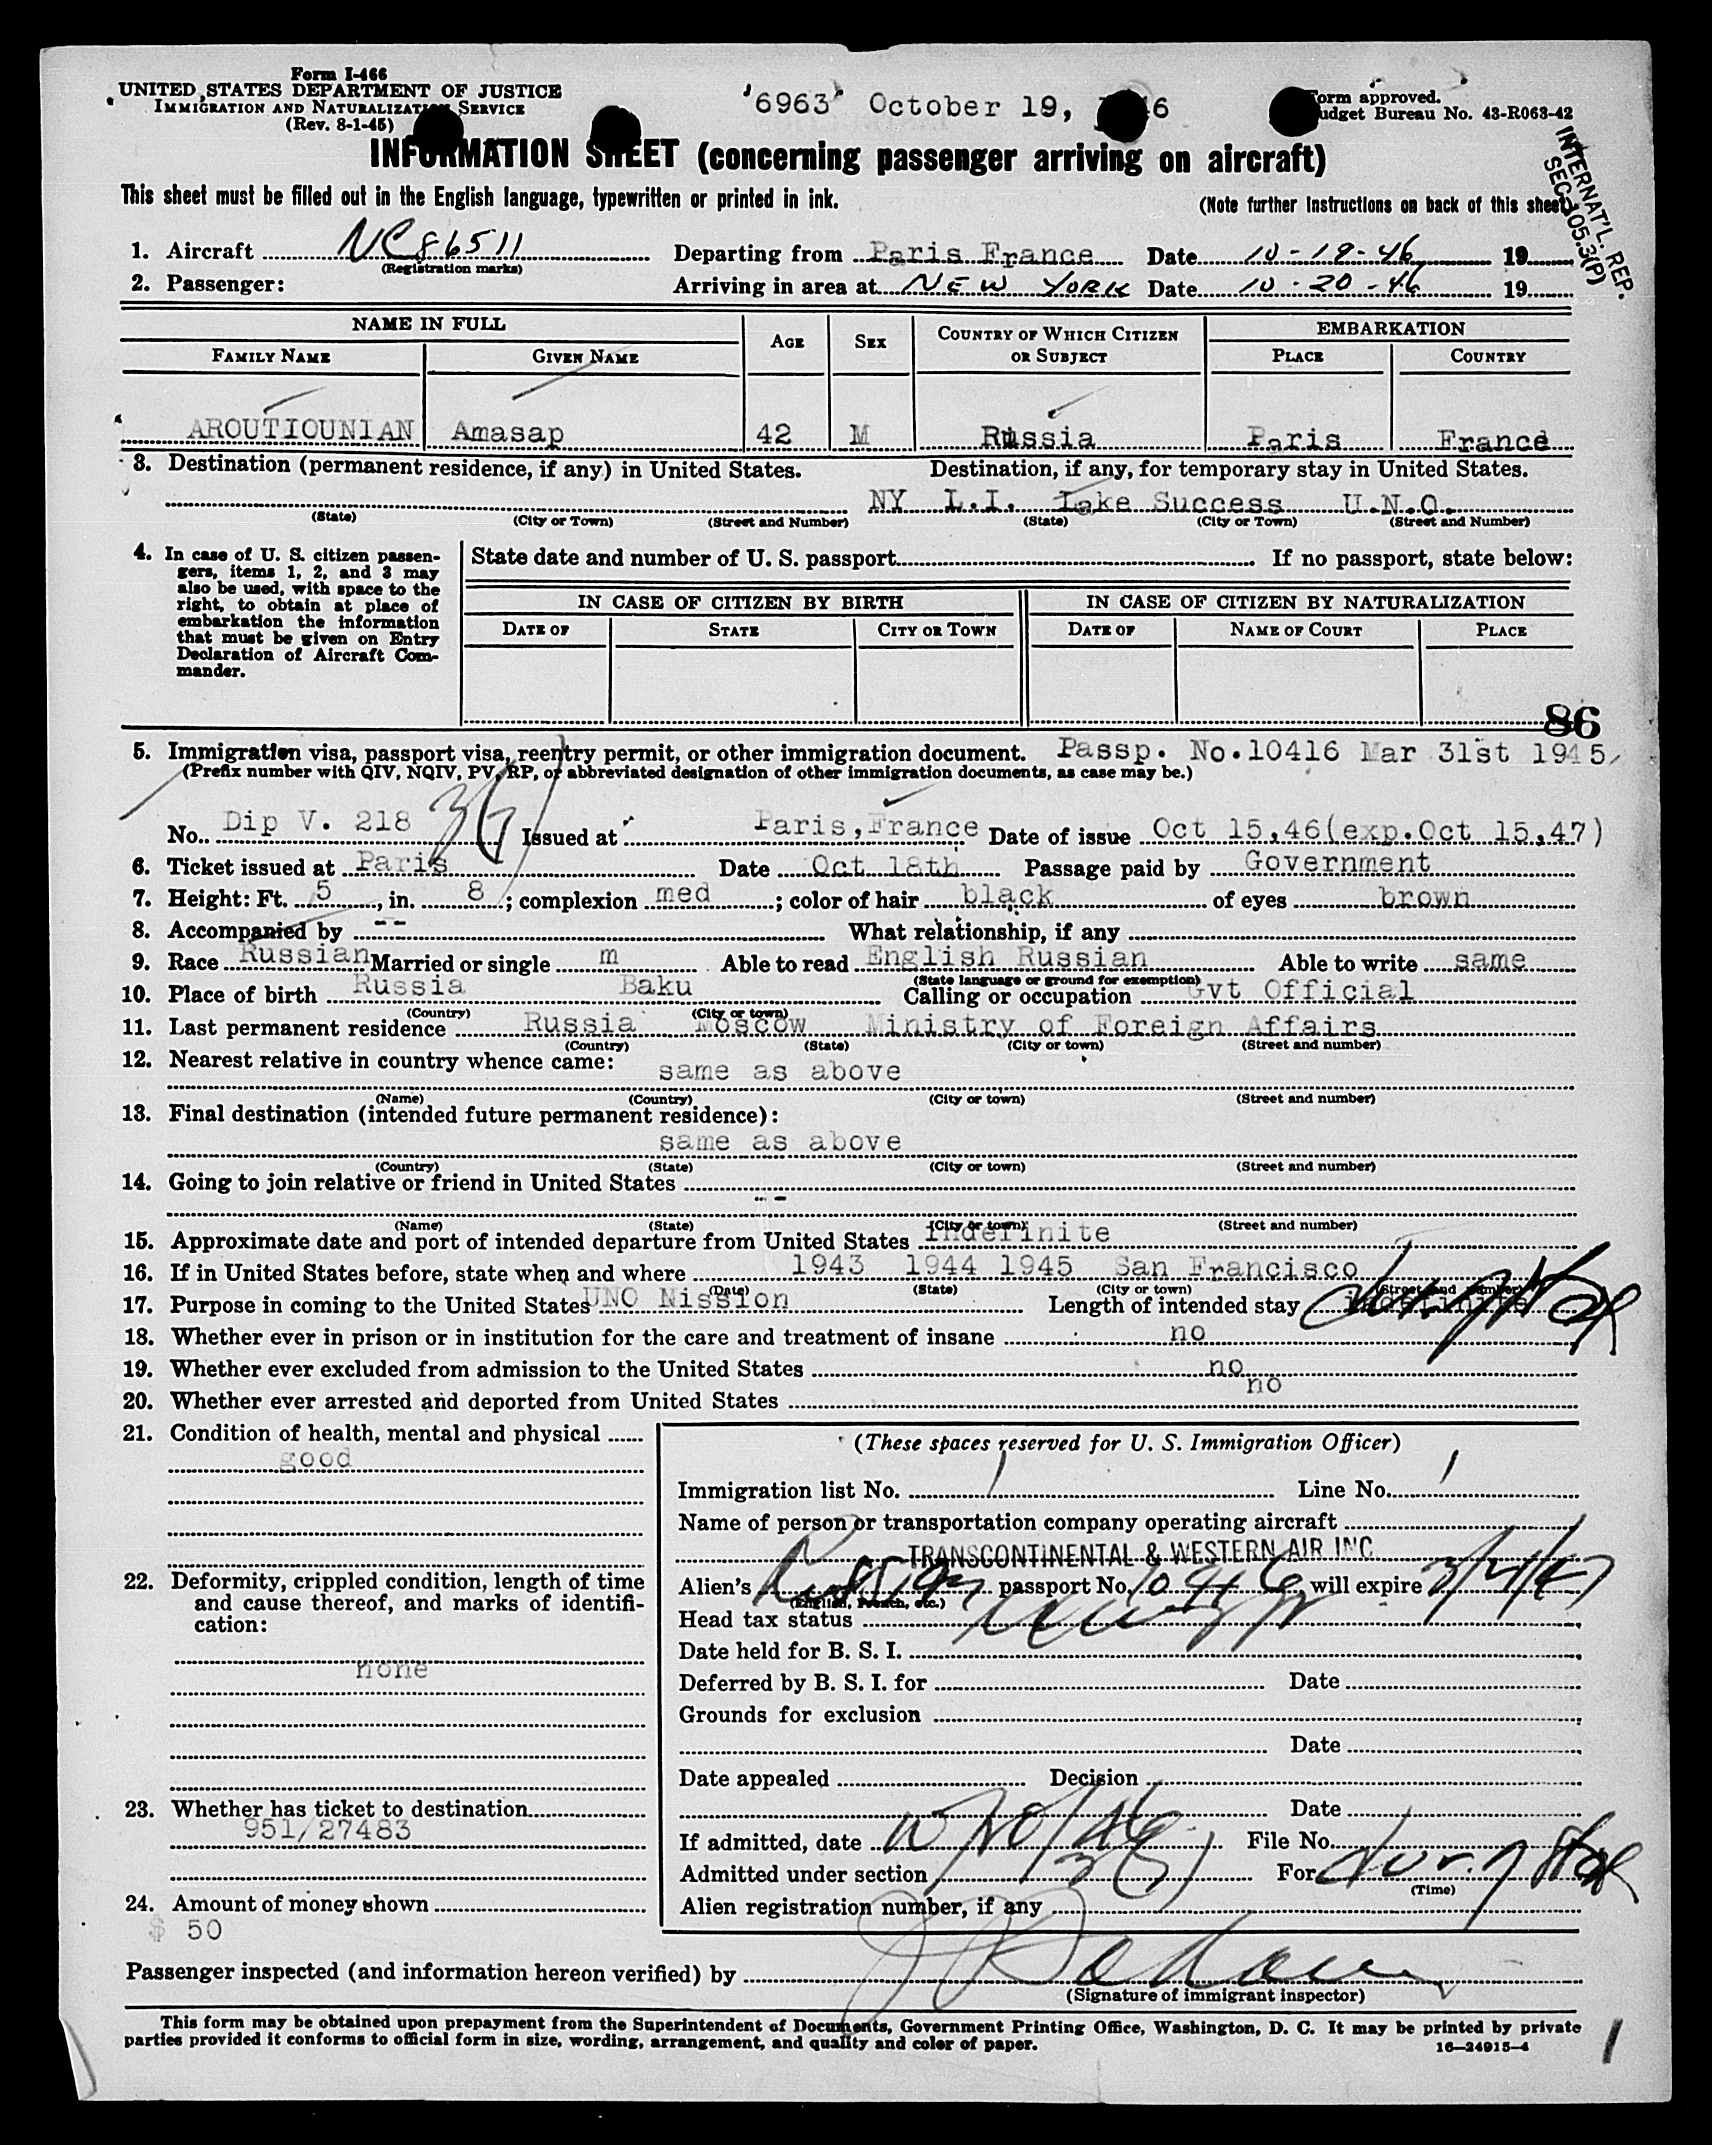 Form I-466
UNITED STATES DEPARTMENT OF JUSTICE
IMMIGRATION AND NATURALIZATION SERVICE
(Rev. 8-1-45)
6963 October 19, 6
Form approved.
Budget Bureau No. 43-R063-42
INFORMATION SHEET (concerning passenger arriving on aircraft)
INTERNAT'L. REP.
SEC. 105.3(P)
This sheet must be filled out in the English language, typewritten or printed in ink. (Note further instructions on back of this sheet)
1. Aircraft NC86511 Departing from Paris France Date 10-19-46 19
(Registration marks)
2. Passenger: Arriving in area at NEW YORK Date 10-20-46 19
NAME IN FULL AGE SEX COUNTRY OF WHICH CITIZEN OR SUBJECT EMBARKATION
FAMILY NAME GIVEN NAME PLACE COUNTRY
AROUTIOUNIAN Amasap 42 M Russia Paris France
3. Destination (permanent residence, if any) in United States. Destination, if any, for temporary stay in United States.
NY L.I. Lake Success U.N.O.
(State) (City or Town) (Street and Number) (State) (City or Town) (Street and Number)
4. In case of U. S. citizen passengers, items 1, 2, and 3 may also be used, with space to the right, to obtain at place of embarkation the information that must be given on Entry Declaration of Aircraft Commander.
State date and number of U. S. passport If no passport, state below:
IN CASE OF CITIZEN BY BIRTH IN CASE OF CITIZEN BY NATURALIZATION
DATE OF STATE CITY OR TOWN DATE OF NAME OF COURT PLACE
86
5. Immigration visa, passport visa, reentry permit, or other immigration document. Passp. No.10416 Mar 31st 1945
(Prefix number with QIV, NQIV, PV, RP, or abbreviated designation of other immigration documents, as case may be.)
No. Dip V. 218 3(7) Issued at Paris, France Date of issue Oct 15,46(exp.Oct 15,47)
6. Ticket issued at Paris Date Oct 18th Passage paid by Government
7. Height: Ft. 5, in. 8; complexion med; color of hair black of eyes brown
8. Accompanied by -- What relationship, if any
9. Race Russian Married or single m Able to read English Russian Able to write same
(State language or ground for exemption)
10. Place of birth Russia Baku Calling or occupation Gvt Official
(Country) (City or town)
11. Last permanent residence Russia Moscow Ministry of Foreign Affairs
(Country) (State) (City or town) (Street and number)
12. Nearest relative in country whence came: same as above
(Name) (Country) (City or town) (Street and number)
13. Final destination (intended future permanent residence):
same as above
(Country) (State) (City or town) (Street and number)
14. Going to join relative or friend in United States
--
(Name) (State) (City or town) (Street and number)
15. Approximate date and port of intended departure from United States indefinite
16. If in United States before, state when and where 1943 1944 1945 San Francisco
(Date) (State) (City or town) (Street and number)
17. Purpose in coming to the United States UNO Mission Length of intended stay indefinite
18. Whether ever in prison or in institution for the care and treatment of insane no
19. Whether ever excluded from admission to the United States no
20. Whether ever arrested and deported from United States no
21. Condition of health, mental and physical
good
22. Deformity, crippled condition, length of time and cause thereof, and marks of identification:
none
23. Whether has ticket to destination
951/27483
24. Amount of money shown
$ 50
(These spaces reserved for U. S. Immigration Officer)
Immigration list No. 1 Line No. 1
Name of person or transportation company operating aircraft
TRANSCONTINENTAL & WESTERN AIR INC
Alien's Russian passport No. 10416, will expire
(English, French, etc.)
Head tax status
Date held for B. S. I.
Deferred by B. S. I. for Date
Grounds for exclusion
Date
Date appealed Decision
Date
If admitted, date 10/20/46 File No.
Admitted under section 3(7) For
(Time)
Alien registration number, if any
Passenger inspected (and information hereon verified) by
(Signature of immigrant inspector)
This form may be obtained upon prepayment from the Superintendent of Documents, Government Printing Office, Washington, D. C. It may be printed by private
parties provided it conforms to official form in size, wording, arrangement, and quality and color of paper. 16—24915-4
1